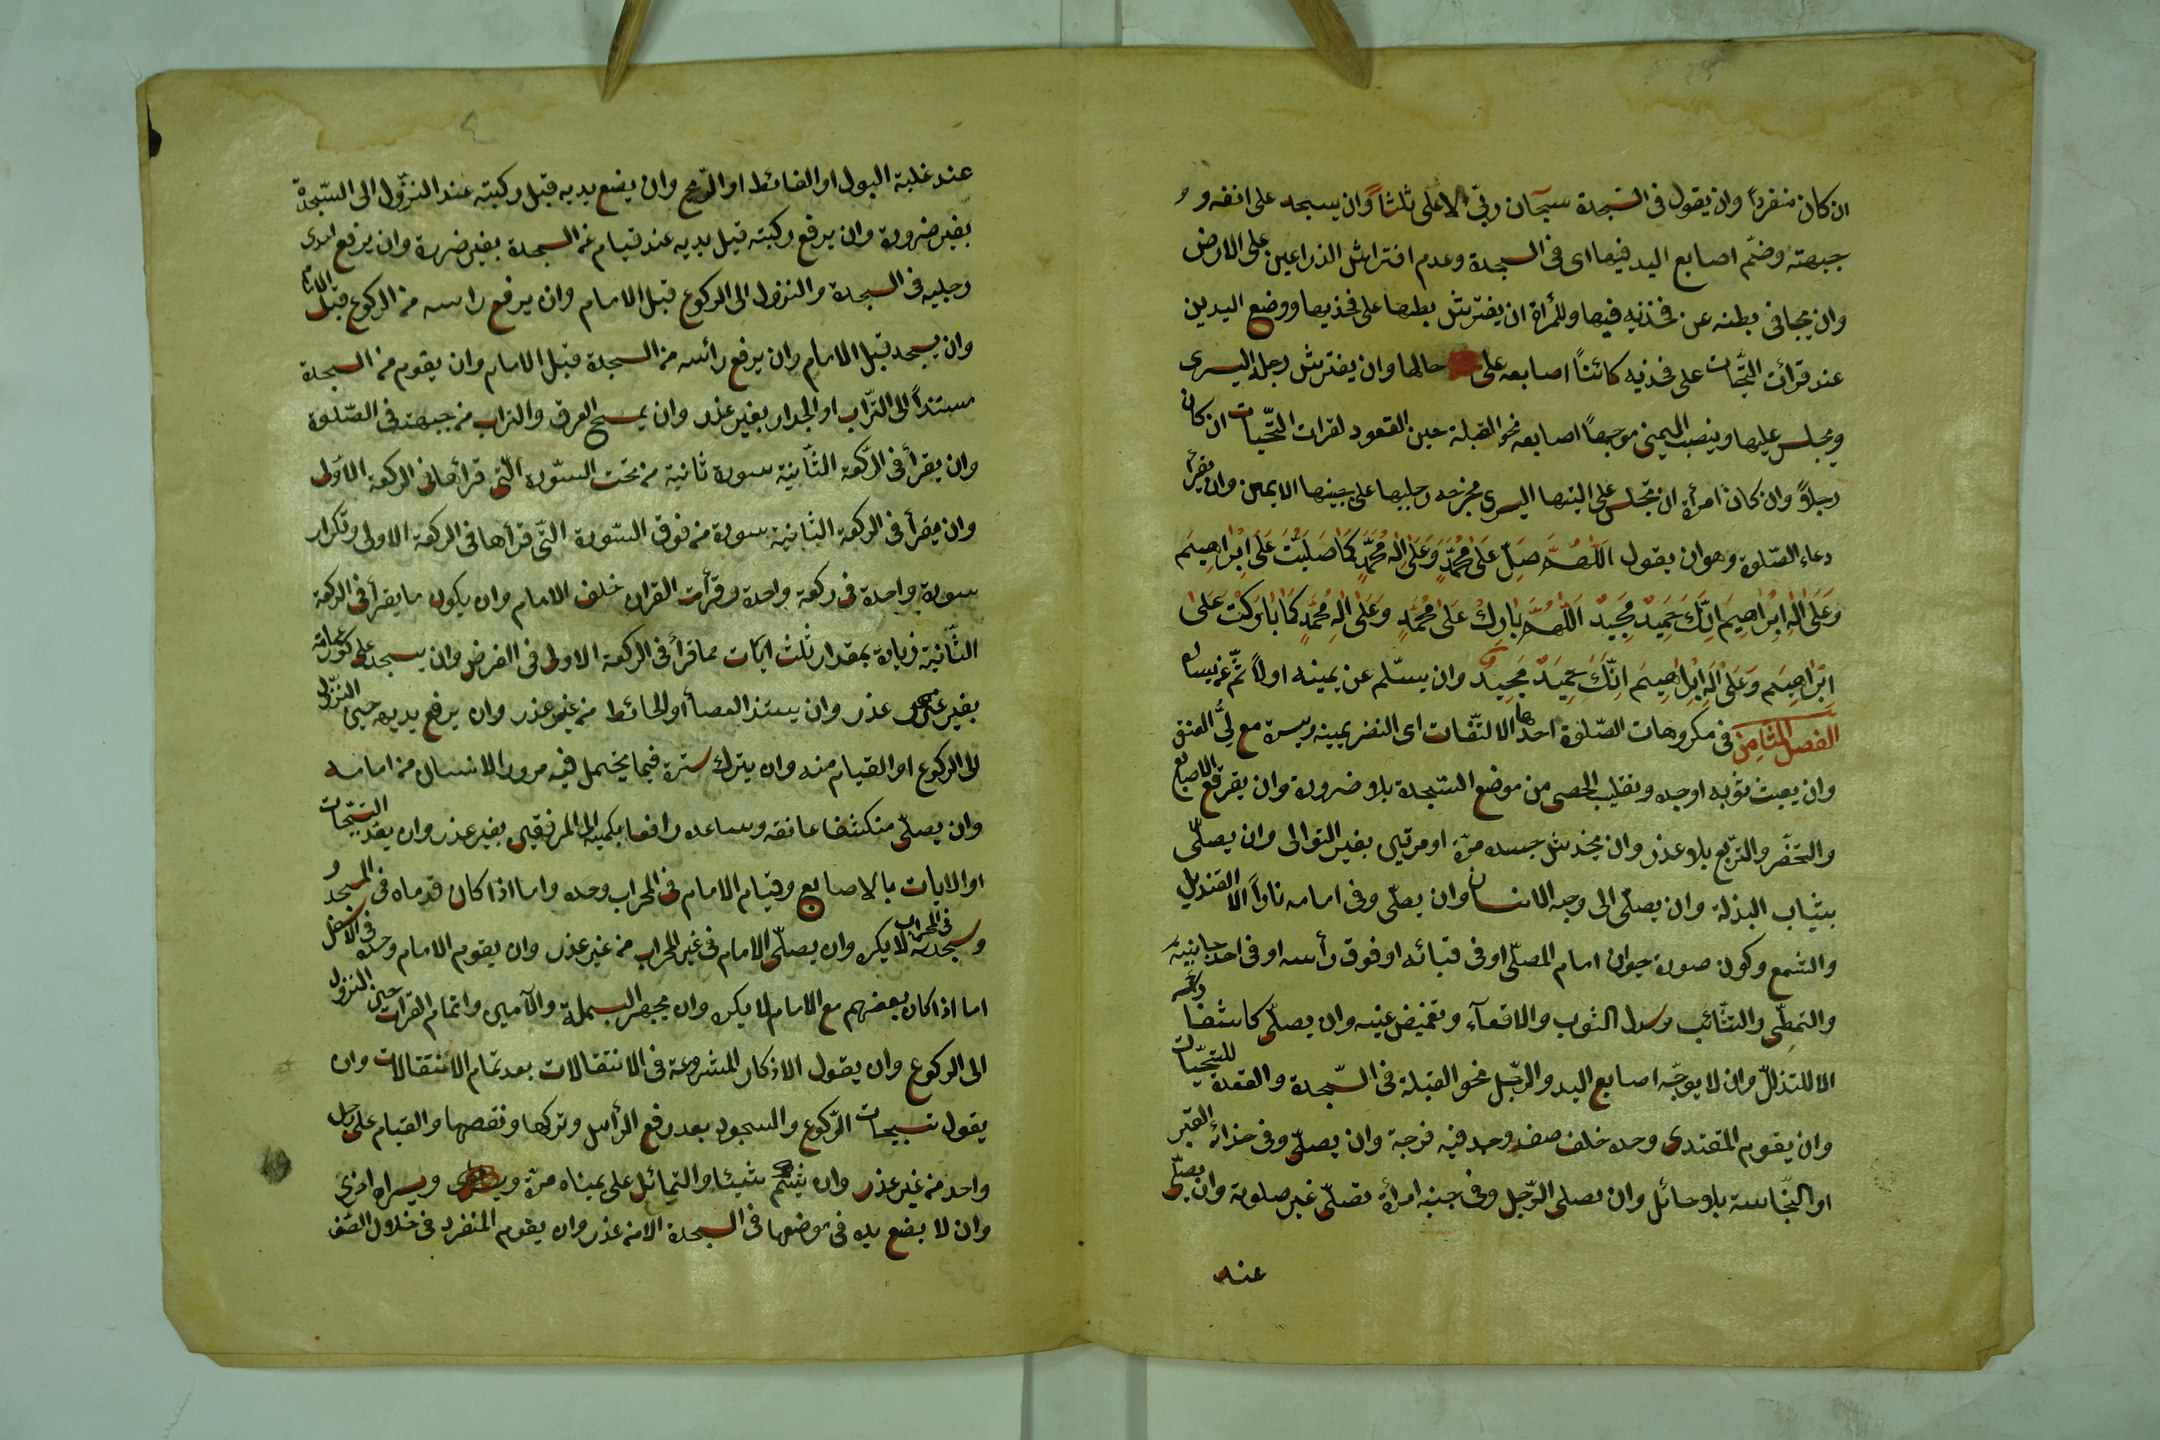 ان كان منفرداً وان يقول فى السّجدة سبحان ربّى الاعلى ثلثاً وان يسجد على انفه و
جبهته وضمّ اصابع اليد فيها اى فى السجدة وعدم افتراش الذراعين على الارض
وان يجافى بطنه عن فخذيه فيها وللمرأة ان يفترش بطنها على فخذيها ووضع اليدين
عند قرأت التحّيات على فخذيه كائناً اصابعه على حالها وان يفترش رجله اليسرى
ويجلس عليها وينصب اليمنى موجهاً اصابعه نحو القبلة حين القعود لقرات التحّيات ان كان
رجلاً وان كان امرأة ان تجلس على اليتها اليسرى مخرجه رجليها على جبينها الايمين وان يقرأ
دعاء الصّلوة وهو ان يقول اَللّٰهُمَّ صَلِّ عَلٰى مُحَمَّدٍ وَعَلٰى اٰلِ مُحَمَّدٍ كَمَا صَلَيْتَ عَلٰى اِبْرٰاهِيمَ
وَعَلٰى اٰلِ اِبْرٰاهِيمَ اِنَّكَ حَمِيدٌ مَجِيدٌ اَللّٰهُمَّ بَارِكْ عَلٰى مُحَمَّدٍ وَعَلٰى اٰلِ مُحَمَّدٍ كَمَا بَارَكْتَ عَلٰى
اِبْرٰاهِيمَ وَعَلٰى اٰلِ اِبْرٰاهِيمَ اِنَّكَ حَمِيدٌ مَجِيدٌ وان يسلّم عن يمينه اولاً ثمّ عن يساره
الفصل الثامن فى مكروهات الصّلوة احدها الالتّفات اى النضر يمينه ويسرة مع لىّ العنق
وان يعبث بثوبه او جسده وتقليب الحصى من موضع السّجدة بلا ضرورة وان يفرقع الاصابع
والتخّصر والتربّع بلا عذر وان يخدش جسده مرّة او مرتين بغير التوالى وان يصلّى
بثياب البذلة وان يصلّى الى وجه الانسان وان يصلّى وفى امامه ناراً الا القنديل
والشمع وكون صورة حيوان امام المصلّى او فى قبائه او فوق رأسه او فى احد جانبيه
والتمطّى والتثّائب وسدل الثوب والاقعآء وتغميض عينيه وان يصلّى كاشفا رأسه
الا للتذلّل وان لا يوجّه اصابع اليد والرجّل نحو القبلة فى السّجدة والقعدة للتحّيّات
وان يقوم المقتدى وحده خلف صف وجد فيه فرجة وان يصلّى وفى حذائه القبر
او النجّاسة بلا حائل وان يصلى الرّجل وفى جنبه امرأة تصلّى غير صلوته وان يصلّى
عند
عند غلبة البول او الغائط او الرّيح وان يضع يديه قبل ركبتيه عند النزّول الى السّجدة
بغير ضرورة وان يرفع ركبتيه قبل يديه عند قيام من السجدة بغير ضررة وان يرفع احدى
رجليه فى السجدة والنزول الى الركوع قبل الامام وان يرفع راسه من الركوع قبل الامام
وان يسجد قبل الامام وان يرفع رأسه من السجدة قبل الامام وان يقوم من السجدة
مستنداً الى التّراب او الجدار بغير عذر وان يمسح العرق والتراب من جبهته فى الصّلوة
وان يقرأ فى الرّكعة الثّانية سورة ثانية من تحت السّورة الّتى قرأها فى الركعة الاولى
وان يقرأ فى الركعة الثانية سورة من فوق السّورة التّى قرأها فى الركعة الاولى وتكرار
سورة واحدة فى ركعة واحدة وقرأت القران خلف الامام وان يكون ما يقرأ فى الركعة
الثّانية زيادة بمقدار ثلث ايّات مما قرأ فى الركعة الاولى فى الفرض وان يسجد على كور عمامته
بغير عذر وان يستند العصا او الحائط من غير عذر وان يرفع يديه حين النزّول
الى الركوع او القيام منه وان يترك سترة فيما يحتمل فيه مرور الانسان من امامه
وان يصلّى منكشفا عاتقه وساعده رافعا بكميه الى المرفقين بغير عذر وان يعّد التسبيّحات
او الايات بالاصابع وقيام الامام فى المحراب وحده واما اذا كان قدماه فى المسجد و
وسجدته فى المحراب لا يكره وان يصلّى الامام فى غير المحراب من غير عذر وان يقوم الامام وحده فى الاسفل
اما اذا كان بعضهم مع الامام لا يكره وان يجهر البسملة والآمين واتمام القرات حين النزول
الى الركوع وان يقول الاذكار المشروعة فى الانتقالات بعد تمام الانتقالات وان
يقول تسبيحات الرّكوع والسجود بعد رفع الرأس وتركها ونقصها والقيام على رجل
واحد من غير عذر وان يشم شيئا والتمائل على يمناه مرّة ويسراه اخرى
وان لا يضع يده فى موضعها فى السجدة الا من عذر وان يقوم المنفرد فى خلال الصّف